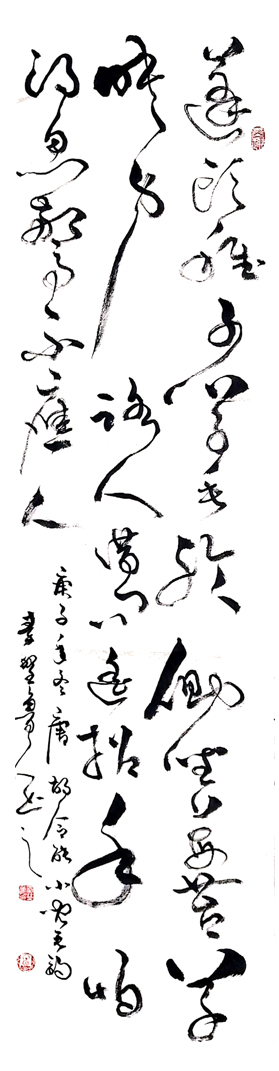 蓬頭稚子學垂綸側坐莓苔草
映身路人借問遥招手怕
得魚驚不應人
庚子年冬唐胡令能小兒垂釣